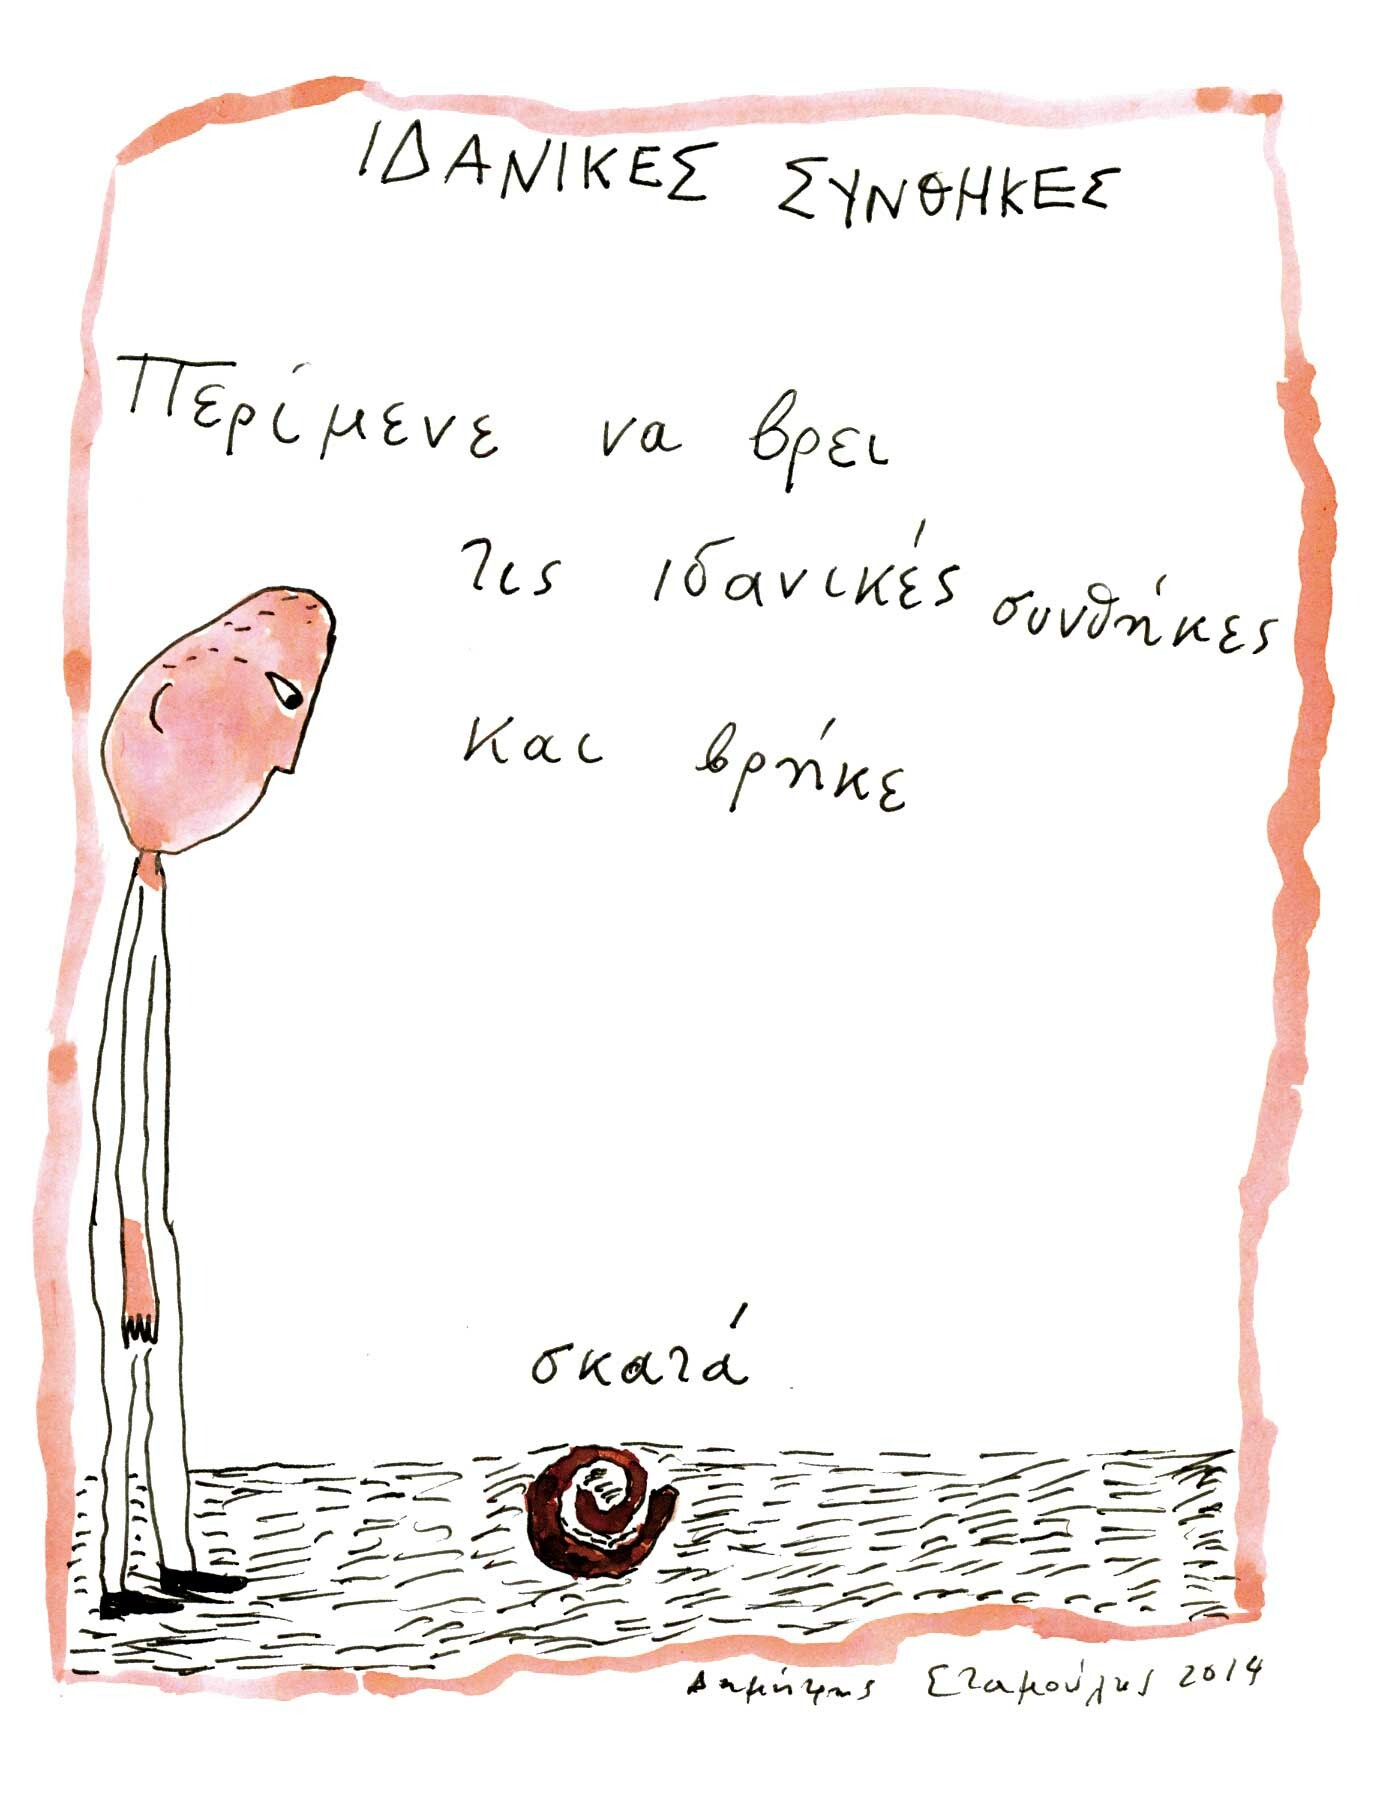 ΙΔΑΝΙΚΕΣ ΣΥΝΘΗΚΕΣ
Περίμενε να βρει
τις ιδανικές συνθήκες
και βρήκε
σκατά
Δημήτρης Σταμούλης 2014